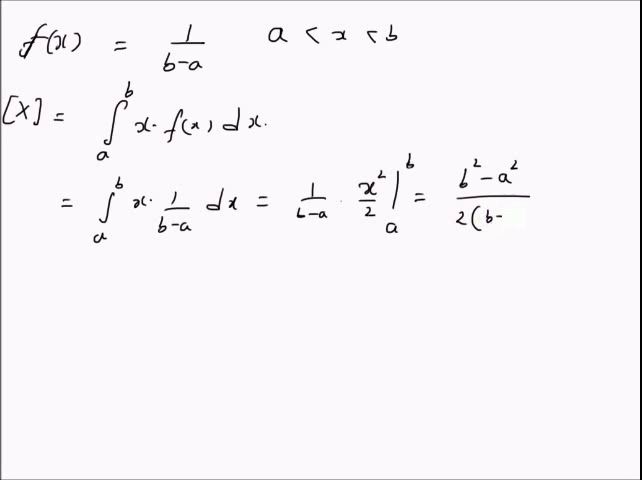 f(x) = 1/(b-a) a < x < b
[X] = ∫_a^b x · f(x) dx.
= ∫_a^b x · 1/(b-a) dx = 1/(b-a) · x²/2 |_a^b = (b² - a²)/(2(b-